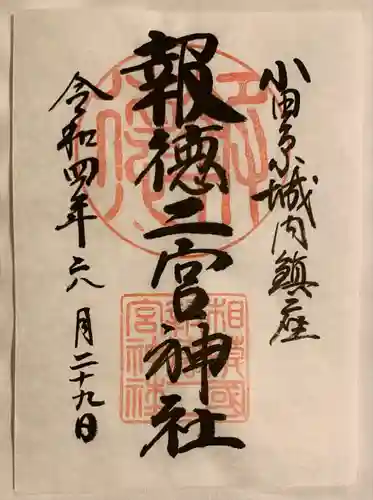 小田原城内鎮座
報徳二宮神社
令和四年六月二十九日
相模國
報徳二
宮神社